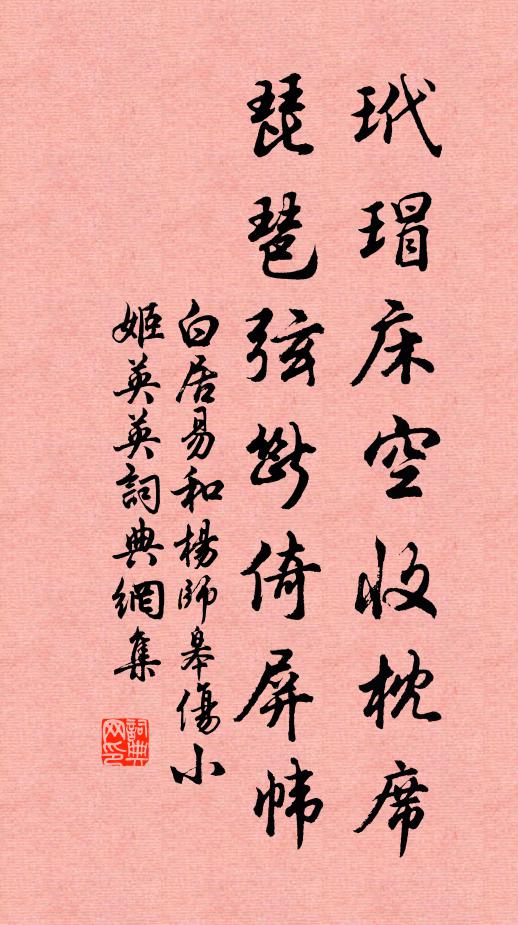 玳瑁床空收枕席
琵琶弦断倚屏帏
白居易和楊師皋傷小
姬英英詞典網集
詞典
网印